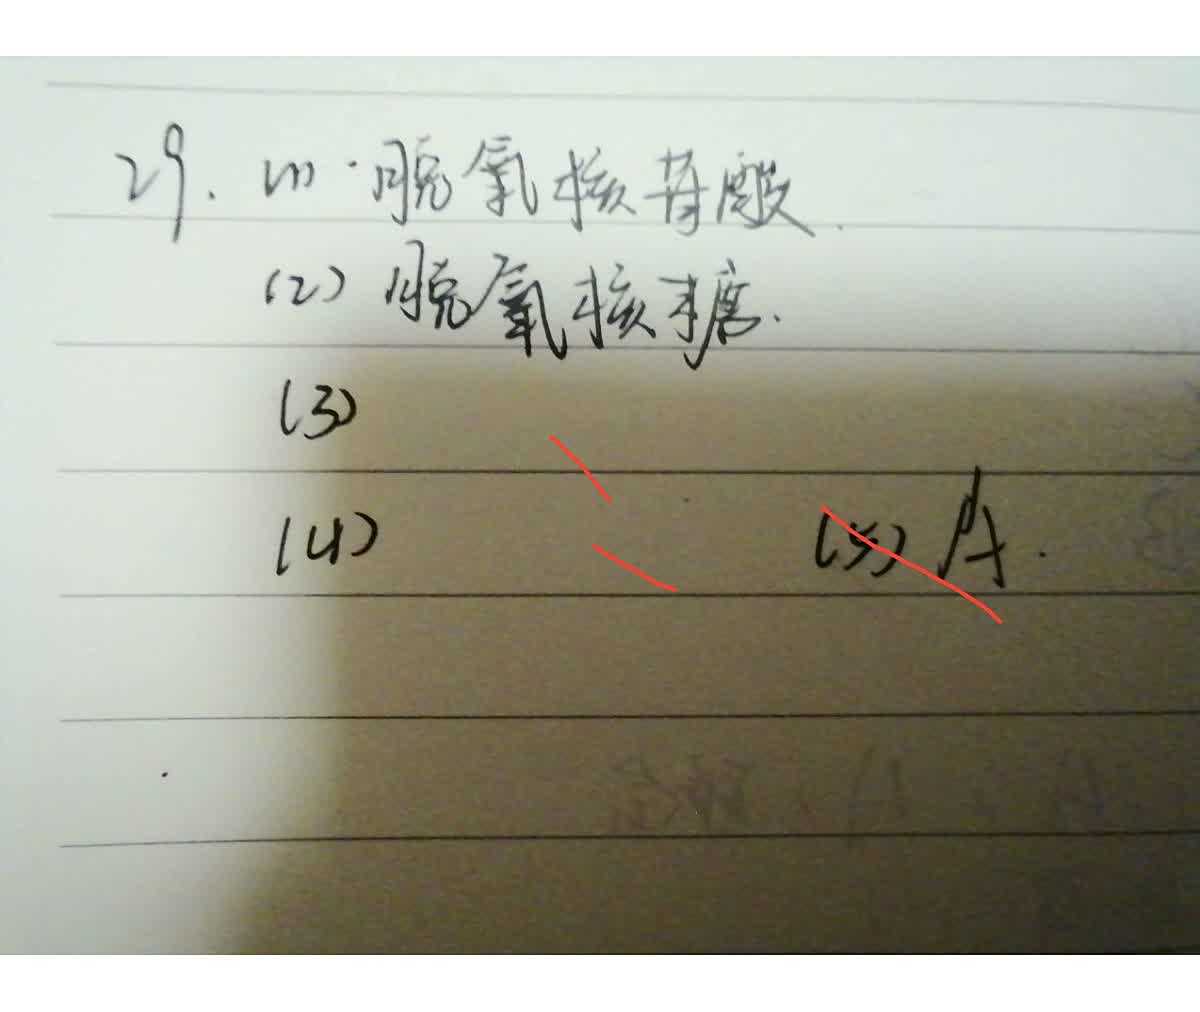 29. (1)·脱氧核苷酸.
(2) 脱氧核糖.
(3)
(4) (5) A.